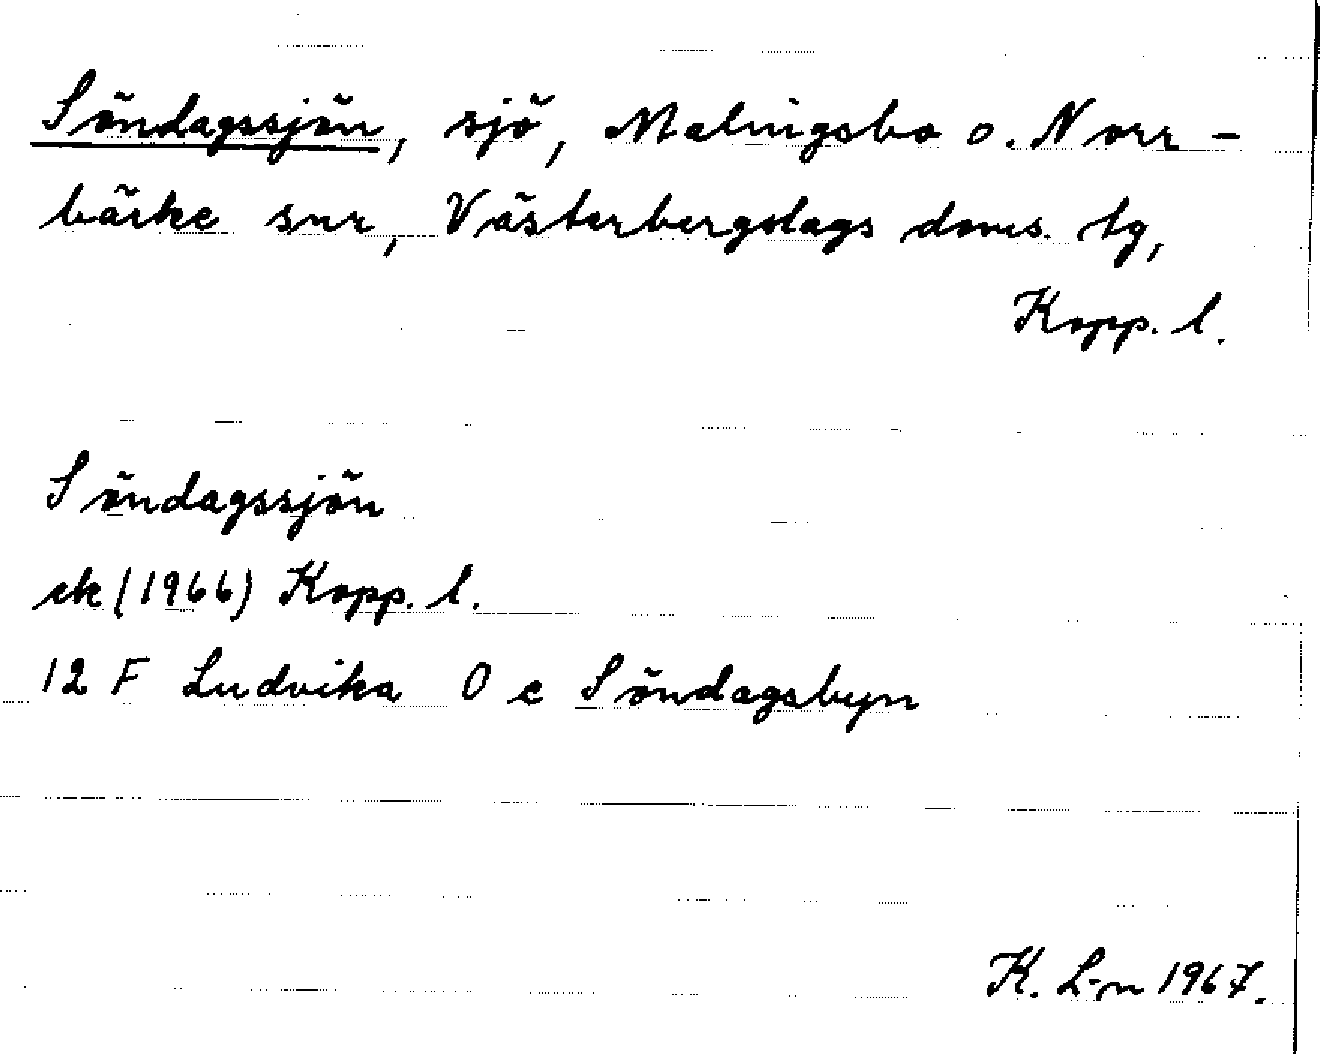 Söndagssjön, sjö, Malingsbo o. Norr-
bärke snr, Västerbergslags doms. tg,
Kopp. l.
Söndagssjön
ek (1966) Kopp. l.
12 F Ludvika 0 e Söndagsbyn
K. L-n 1967.